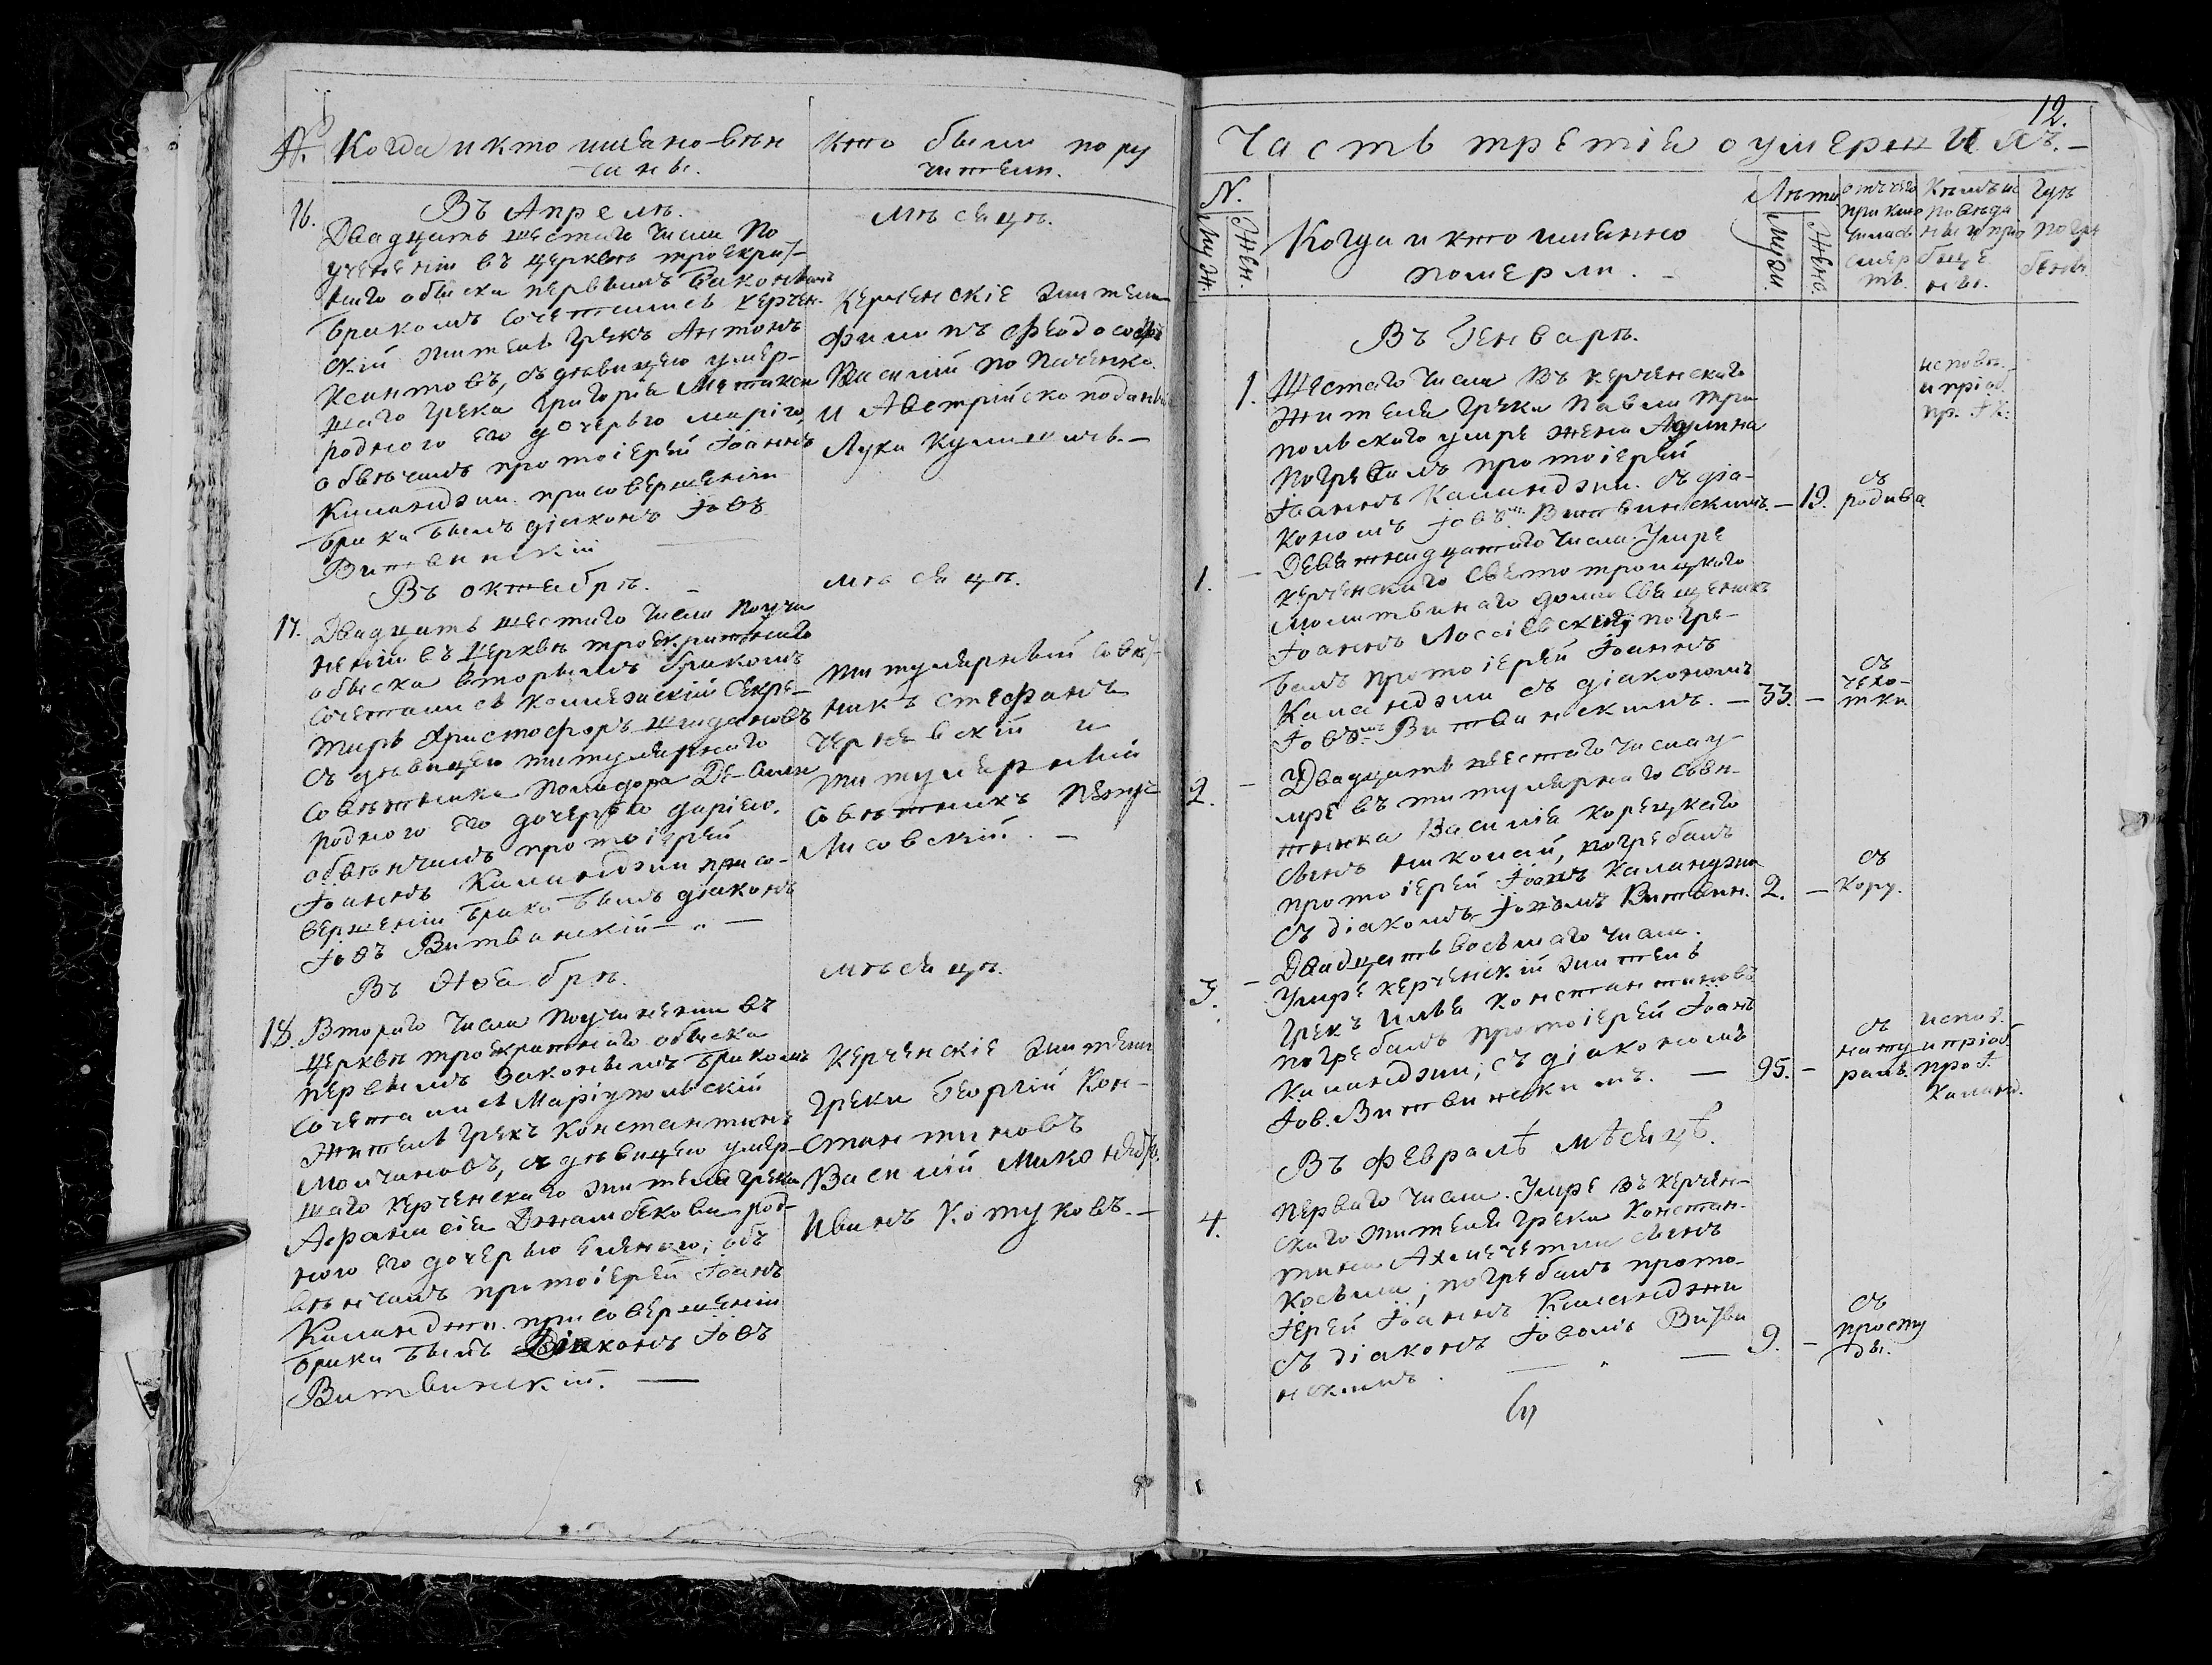 N. Когда и кто имяно вѣн
чаны.
Кто были пору
чители.
16. Въ Апрелѣ. мѣсяцѣ.
Двадцать шестаго числа По
учененіи въ церквѣ троекрат-
наго обыска первымъ Законнымъ
бракомъ сочетались керчен-
скій житель Грекъ Антонъ
Ксантовъ, съ дѣвицею умер-
шаго Грека Григорія
роднаго его дочерью Маріею,
обвѣчалъ протоіерей Іоаннъ
Каланджи. при совершеніи
брака былъ діаконъ Іовъ
Витвинскій
Керченскіе жители
Филипъ
Василій
и Австрійско поданый
Лука
Въ октябрѣ. мѣсяцѣ.
17. Двадцать шестаго числа по учи
неніи въ Церквѣ троекратнаго
обыска вторымъ бракомъ
сочетались Колежскій Секре-
тарь Христофоръ
съ дѣвицею титулярнаго
Совѣтника
роднаго его дочерью даріею.
обвѣнчалъ протоіерей
Іоаннъ Каланджи при со-
вершеніи брака былъ діаконъ
Іовъ Витвинскій
титулярный Совѣт-
никъ Стефанъ
Чернявскій и
титулярный
Совѣтникъ Петръ
Лисовскій. —
Въ Ноябрѣ. мѣсяцѣ.
18. Втораго числа По учиненіи въ
церквѣ троекратнаго обыска
первымъ Законымъ бракомъ
сочетались Маріупольскій
житель грекъ Константинъ
Молчановъ, съ дѣвицею умер-
шаго Керченскаго жителя грека
Афанасія Джамбекова род-
ного его дочерью Еленою; об
вѣнчалъ протоіерей Іоанъ
Каланджи. при совершеніи
брака былъ Діаконъ Іовъ
Витвинскій. —
Керченскіе жители
Греки Георгій Кон-
стантиновъ
Василій
Иванъ Котуковъ. —
12.
Часть третія о умершихъ. —
N.
Муж. Жен.
Когда и кто имянно
померли. —
Лѣта
Мужи Жено.
отъ чего
приклю
чилась
смер
ть.
Кѣмъ ис
повѣда
ны и прио
бще
ны.
Гдѣ
погре
бены.
Въ Генварѣ.
1. Шестаго числа Въ керченскаго
жителя грека Павла три
польскаго умре жена
Погребалъ протоіерей
Іоаннъ Каланджи. съ діа-
кономъ Іовомъ Витвинскимъ. — 19. съ
родива.
исповѣ.
и пріоб.
пр. І. К:
1. — Девятнадцатаго числа. Умре
керченскаго Свято троицкаго
молитвинаго дома Священикъ
Іоаннъ погре-
балъ протоіерей Іоаннъ
Каланджи съ діакономъ
Іовомъ Витвинскимъ. — 33. — съ
чехо-
тки
2. — Двадцать шестаго числа у-
мре въ титулярнаго Совѣ-
тника Василія Корецкаго
сынъ николай, погребалъ
протоіерей Іоанъ Каланджи
съ діакомъ Іовомъ Витвин. 2. — съ
кору.
3. — Двадцать восьмаго числа.
Умре керченскій житель
грекъ Илья Константиновъ
погребалъ протоіерей Іоанъ
Каланджи, съ діакономъ
Іов. Витвинскимъ. — 95. — съ
нату
раль.
испов.
и пріоб.
про І.
Каланд.
Въ Февралѣ мѣсяцѣ.
4. Перваго числа. Умре въ керчен-
скаго жителя грека Констан-
тина Ахмечетли сынъ
Косьма; погребалъ прото-
Іерей Іоаннъ Каланджи
съ діаконъ Іовомъ Витви
нскимъ. — 9. — съ
просту
ды.